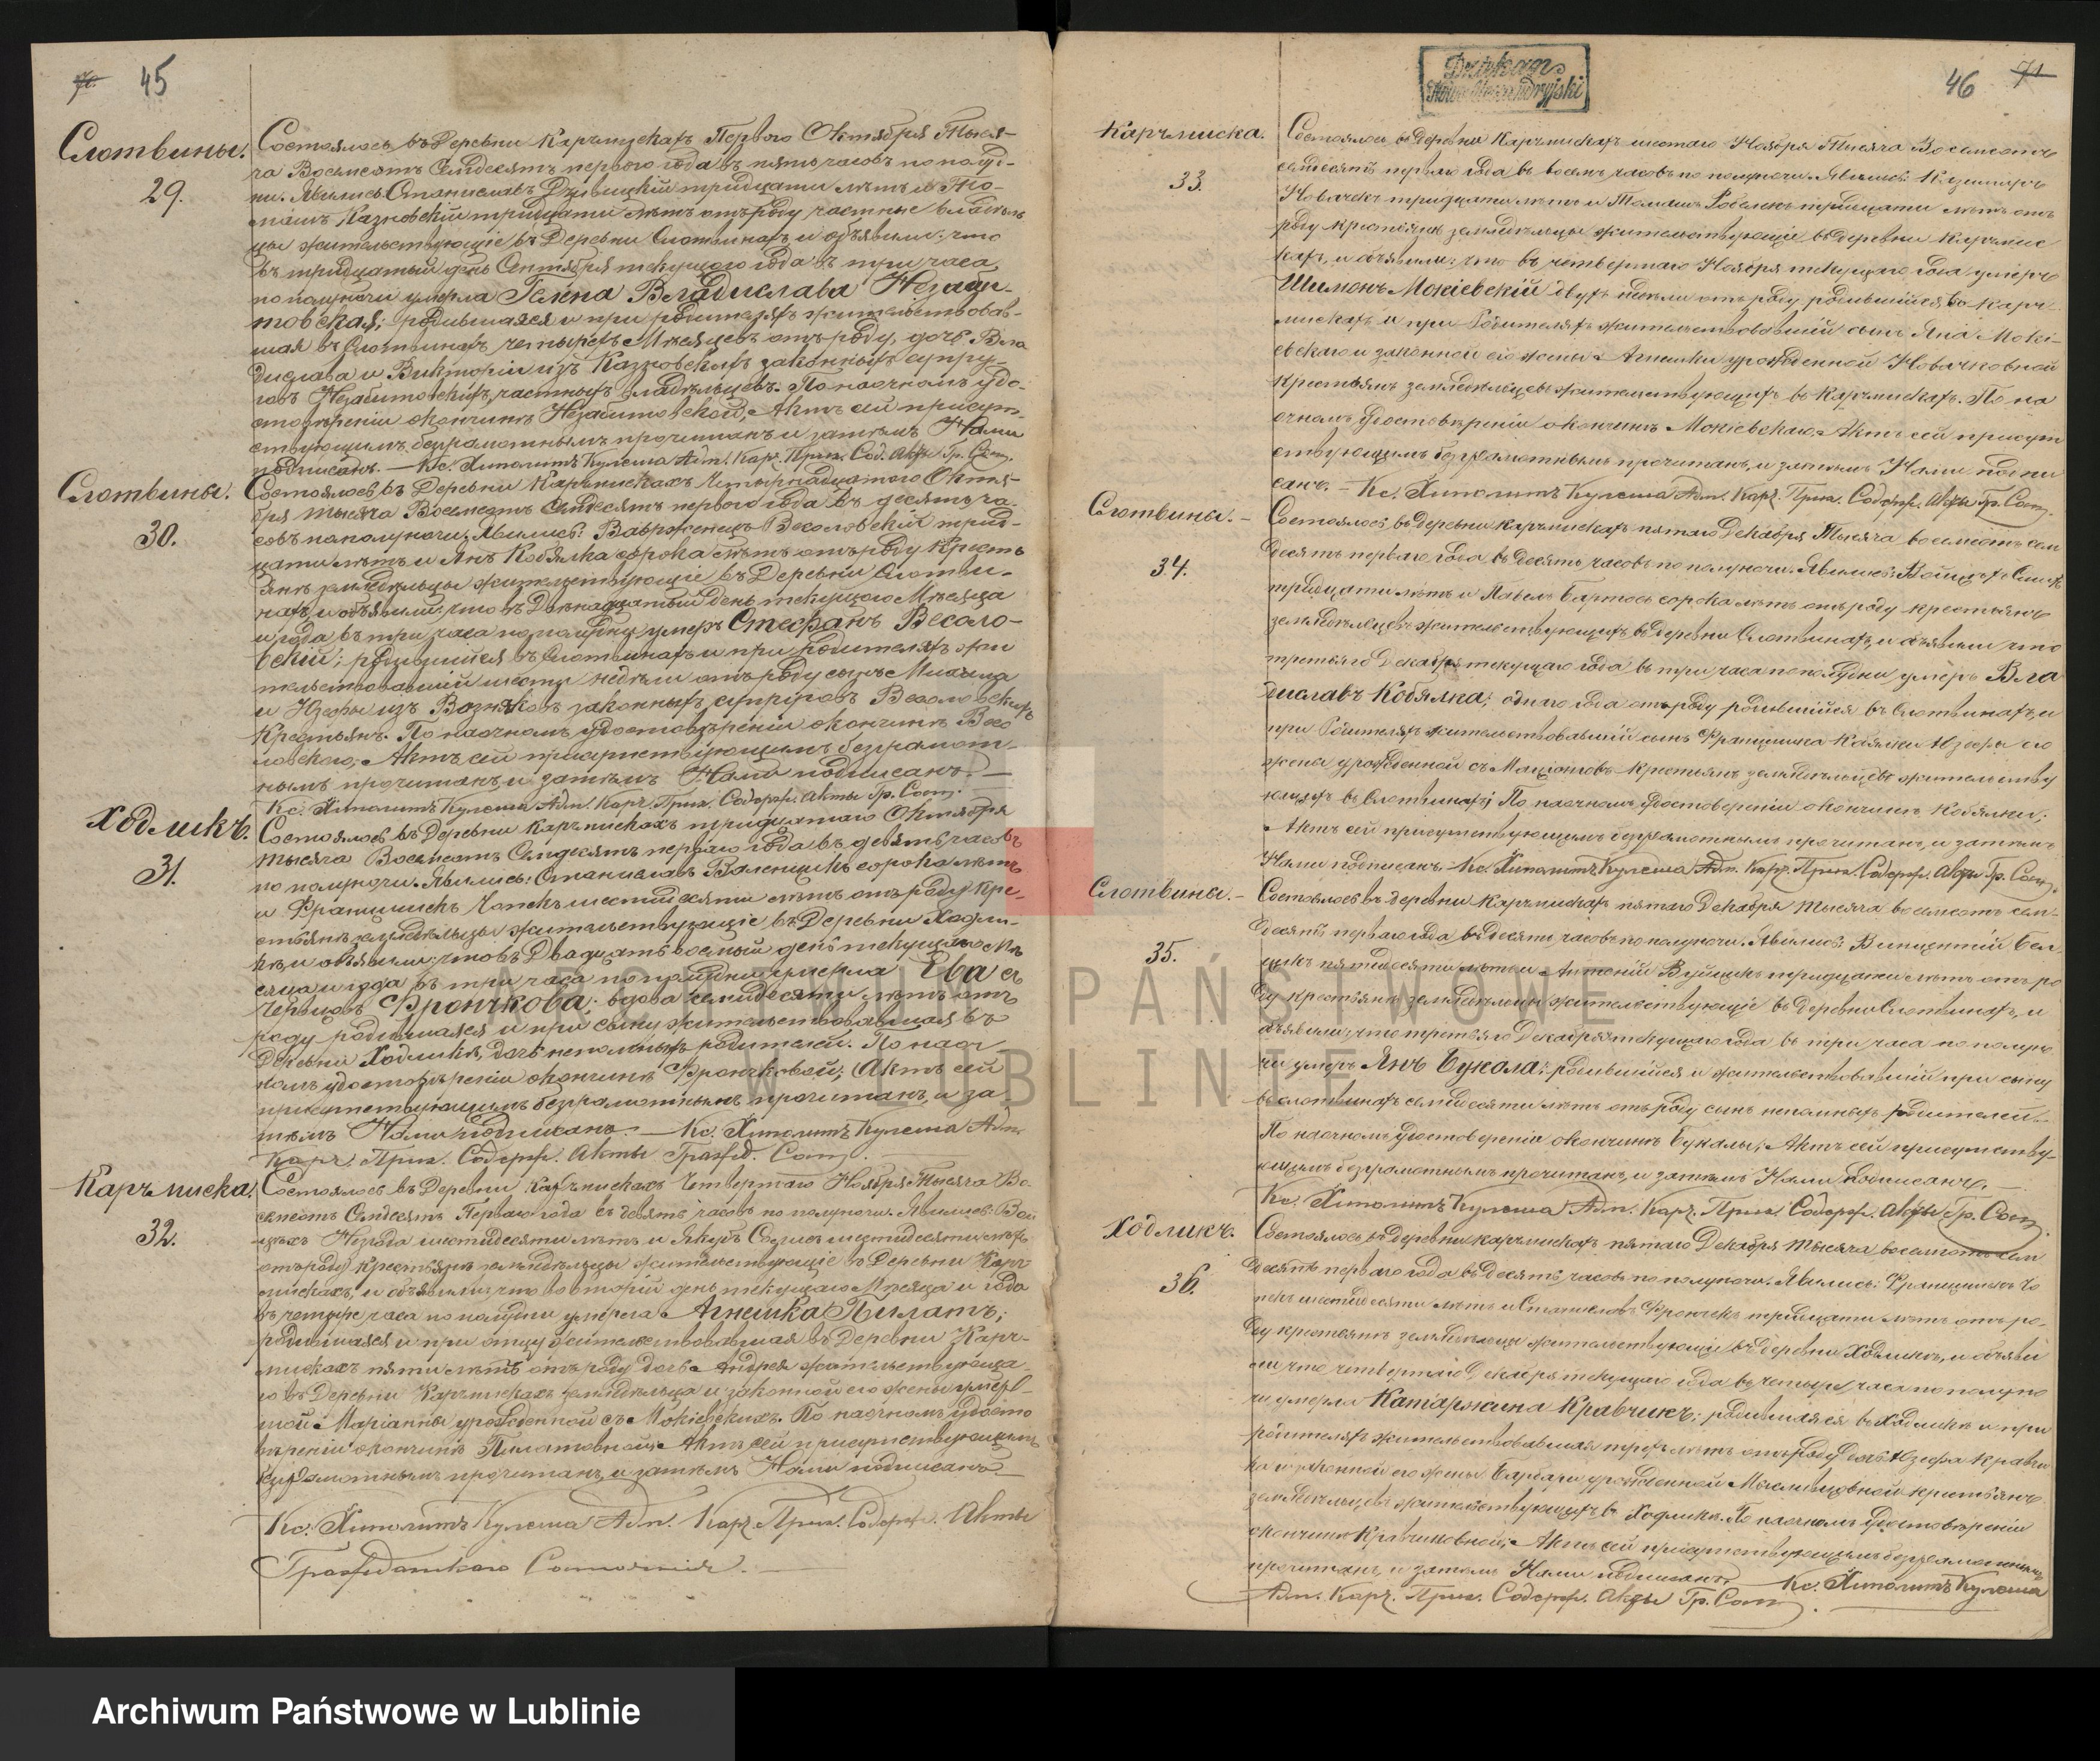 45
Слотвины.
29.
Состоялось въ Деревни Карчмискахъ Перваго Октября Тыся-
ча Восемсотъ Семдесятъ перваго года въ пять часовъ по полуд-
ни. Явились Станиславъ тридцати лѣтъ и То-
машъ Казновскій тридцати лѣтъ отъ роду частные владѣль
цы жительствующіе въ Деревни Слотвинахъ и объявили, что
въ тридцатый день Сентября текущаго года въ три часа
по полуночи умерла Гелена Владислава Незаби-
товская; родившаяся и при родителяхъ жительствовав-
шая въ Слотвинахъ четырехъ Мѣсяцевъ отъ роду, дочь Вла
дислава и Викторіи изъ Казновскихъ законныхъ супру-
говъ Незабитовскихъ, частныхъ владѣльцевъ. По наочномъ удо-
стовѣреніи окончинѣ Незабитовской, Актъ сей присут-
ствующимъ безграмотнымъ прочитанъ и затѣмъ Нами
подписанъ. — Кс. Хиполитъ Кулеша Адм. Карч. Прих. Сод. Акты Гр. Сост.
Слотвины.
30.
Состоялось въ Деревни Карчмискахъ Четырнадцатаго Октя-
бря Тысяча Восемсотъ Семдесятъ перваго года въ десять ча-
совъ по полуночи, Явились: Вавржинецъ Весоловскій трид-
цати лѣтъ и Янъ Кобялка сорока лѣтъ отъ роду Кресть
янъ земледѣльцы жительствующіе въ Деревни Слотви-
нахъ, и объявили: что въ Двѣнадцатый день текущаго Мѣсяца
и года въ три часа по полудни умеръ Стефанъ Весоло-
вскій; родившійся въ Слотвинахъ и при родителяхъ жи
тельствовавшій шести недѣли отъ роду сынъ Михаила
и Юзефы изъ Возняковъ законныхъ супруговъ Весоловскихъ
Крестьянъ. По наочномъ удостовѣреніи окончинѣ Весо
ловскаго, Актъ сей присутствующимъ безграмот-
нымъ прочитанъ, и затѣмъ Нами подписанъ. —
Кс. Хиполитъ Кулеша Адм. Карч. Прих. Содерж. Акты Гр. Сост.
Ходликъ.
31.
Состоялось въ Деревни Карчмискахъ тридцатаго Октября
Тысяча Восемсотъ Семдесятъ перваго года въ девять часовъ
по полуночи. Явились: Станиславъ сорока лѣтъ
и Францишекъ Чопекъ шестидесяти лѣтъ отъ роду кре-
стьянъ земледѣльцы жительствующіе въ Деревни Ходли-
кѣ, и объявили: что въ Двадцать восмый день текущаго Мѣ
сяца и года въ три часа по полудни умерла Ева съ
Фрончкова; вдова семидесяти лѣтъ отъ
роду родившаяся и при сыну жительствовавшая въ
Деревни Ходликѣ, дочь непомныхъ родителей. По наоч
номъ удостовѣреніи окончинѣ Фрончковой; Актъ сей
присутствующимъ безграмотнымъ прочитанъ, и за
тѣмъ Нами подписанъ. — Кс. Хиполитъ Кулеша Адм.
Карч. Прих. Содерж. Акты Гражд. Сост.
Карчмиска.
32.
Состоялось въ Деревни Карчмискахъ Четвертаго Ноября Тысяча Во-
семсотъ Семдесятъ Перваго года въ девять часовъ по полуночи. Явились: Вой
цѣхъ шестидесяти лѣтъ и Якубъ шестидесяти лѣтъ
отъ роду Крестьянъ земледѣльцы жительствующіе въ Деревни Карч
мискахъ, и объявили: что во вторый день текущаго Мѣсяца и года
въ четыре часа по полудни умерла Агнешка Пилатъ;
родившаяся и при отцу жительствовавшая въ Деревни Карч-
мискахъ пяти лѣтъ отъ роду дочь Андрея жительствующа-
го въ Деревни Карчмискахъ земледѣльца и законной его жены умерв-
шой Маріанны урожденной съ Мокіевскихъ. По наочномъ удосто
вѣреніи окончинѣ Пилатовной; Актъ сей присутствующимъ
безграмотнымъ прочитанъ, и затѣмъ Нами подписанъ. —
Кс. Хиполитъ Кулеша Адм. Карч. Прих. Содерж. Акты
Гражданскаго Состоянія.
Dziekan
Nowo Alexandryjski
46 71
Карчмиска.
33.
Состоялось въ Деревни Карчмискахъ шестаго Ноября Тысяча Восемсотъ
семдесятъ перваго года въ восемь часовъ по полуночи. Явились: Казимиръ
Новачекъ тридцати лѣтъ и Томашъ тридцати лѣтъ отъ
роду крестьянъ земледѣльцы жительствующіе въ деревни Карчмис
кахъ, и объявили: что въ четвертаго Ноября текущаго года умеръ
Шимонъ Мокіевскій двухъ недѣли отъ роду родившійся въ Карч
мискахъ и при Родителяхъ жительствовавшій сынъ Яна Мокі-
евскаго и законной его жены Агнешки урожденной Новачковной
крестьянъ земледѣльцевъ жительствующихъ въ Карчмискахъ. По на
очномъ удостовѣреніи окончинѣ Мокіевскаго, Актъ сей присут
ствующимъ безграмотнымъ прочитанъ, и затѣмъ Нами подпи
санъ. — Кс. Хиполитъ Кулеша Адм. Карч. Прих. Содерж. Акты Гр. Сост.
Слотвины. —
34.
Состоялось въ деревни Карчмискахъ пятаго Декабря Тысяча восемсотъ сем
десятъ перваго года въ десять часовъ по полуночи. Явились: Войцѣхъ
тридцати лѣтъ и Павелъ Бартось сорока лѣтъ отъ роду крестьянъ
земледѣльцевъ жительствующихъ въ деревни Слотвинахъ, и объявили что
третьяго Декабря текущаго года въ три часа по полудни умеръ Вла
диславъ Кобялка; одного года отъ роду родившійся въ Слотвинахъ, и
при Родителяхъ жительствовавшій сынъ Францишка Кобялки Юзефы его
жены урожденной съ крестьянъ земледѣльцевъ жительству
ющихъ въ Слотвинахъ; По наочномъ удостоверении окончинѣ Кобялки;
Актъ сей присутствующимъ безграмотнымъ прочитанъ, и затѣмъ
Нами подписанъ. Кс. Хиполитъ Кулеша Адм. Карч. Прих. Содерж. Акты Гр. Сост.
Слотвины. —
35.
Состоялось въ деревни Карчмискахъ пятаго Декабря тысяча восемсотъ сем-
десятъ перваго года въ десять часовъ по полуночи. Явились: Винцентій
пятидесяти лѣтъ и Антоній Вуйцикъ тридцати лѣтъ отъ ро
ду крестьянъ земледѣльцы жительствующіе въ деревни Слотвинахъ, и
объявили, что третьяго Декабря текущаго года въ три часа по полуно
чи умеръ Янъ Букала; родившійся и жительствовавшій при сыну
въ Слотвинахъ семидесяти лѣтъ отъ роду сынъ непомныхъ родителей.
По наочномъ удостовереніи окончинѣ Букалы; Актъ сей присутству-
ющимъ безграмотнымъ прочитанъ, и затѣмъ Нами подписанъ. —
Кс. Хиполитъ Кулеша Адм. Карч. Прих. Содерж. Акты Гр. Сост.
Ходликъ.
36.
Состоялось въ деревни Карчмискахъ пятаго Декабря тысяча восемсотъ сем
десятъ перваго года въ десять часовъ по полуночи. Явились: Францишекъ Чо
пекъ шестидесяти лѣтъ и Станиславъ Фрончекъ тридцати лѣтъ отъ ро-
ду крестьянъ земледѣльцы жительствующіе въ деревни Ходликѣ, и объяви
ли что четвертаго Декабря текущаго года въ четыре часа по полуно
чи умерла Катаржина Кравчикъ; родившаяся въ Ходликѣ и при
родителяхъ жительствовавшая трехъ лѣтъ отъ роду дочь Юзефа Кравчи
ка и законной его жены Барбары урожденной крестьянъ
земледѣльцевъ жительствующихъ въ Ходликѣ. По наочномъ удостовѣреніи
окончинѣ Кравчиковной; Актъ сей присутствующимъ безграмотнымъ
прочитанъ, и затѣмъ Нами подписанъ. Кс. Хиполитъ Кулеша
Адм. Карч. Прих. Содерж. Акты Гр. Сост.
ARCHIWUM PAŃSTWOWE
W LUBLINIE
Archiwum Państwowe w Lublinie